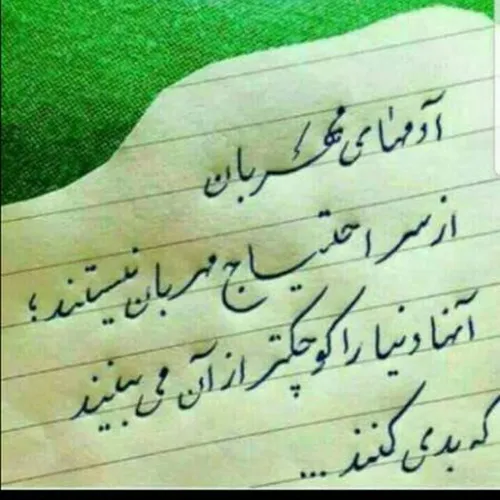 آدمهای مهربان
از سر احتیاج مهربان نیستند؛
آنها دنیا را کوچکتر از آن می بینند
که بدی کنند ...